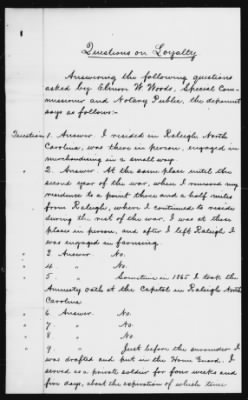 Questions on Loyalty
Answering the following questions
asked by Elmon W. Woods, Special Com-
missioner and Notary Public, the deponent
says as follows:-
Question 1. Answer. I resided in Raleigh North
Carolina, was there in person, engaged in
merchandising in a small way.
" 2. Answer. At the same place until the
second year of the war, when I removed my
residence to a point three and a half miles
from Raleigh, where I continued to reside
during the rest of the war. I was at those
places in person, and after I left Raleigh I
was engaged in farming.
" 3 Answer. No.
" 4 " No.
" 5. " Sometime in 1865 I took the
Amnesty oath at the Capitol in Raleigh North
Carolina
" 6. Answer. No.
" 7. " No.
" 8 " No.
" 9. " Just before the surrender I
was drafted and put in the Home Guard. I
served as a private soldier for four weeks and
five days, about the expiration of which time